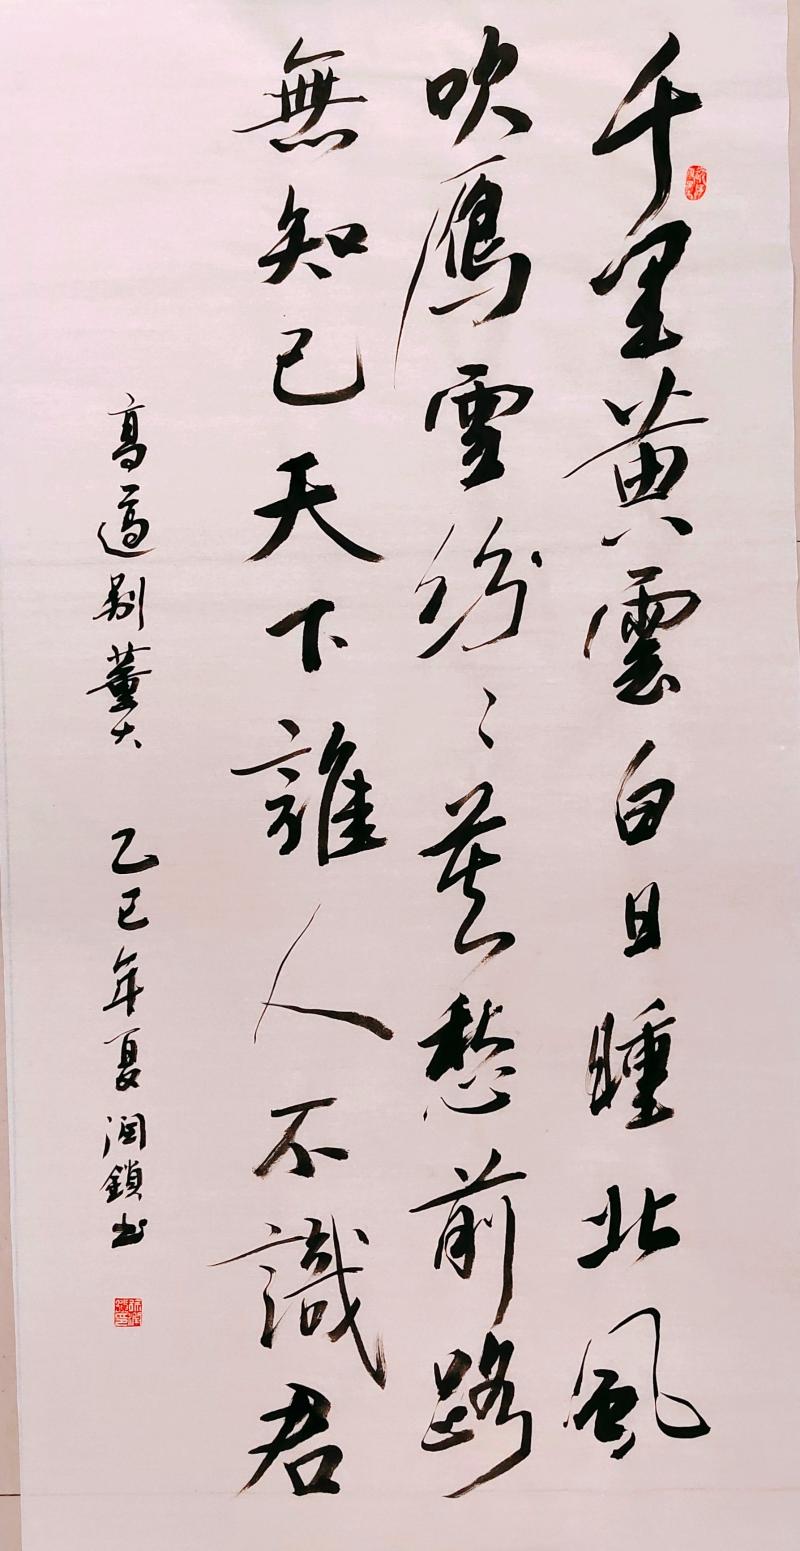 千里黄雲白日曛北風
吹鴈雪紛〻莫愁前路
無知己天下誰人不識君
高適別董大 乙巳年夏 潤鎖书